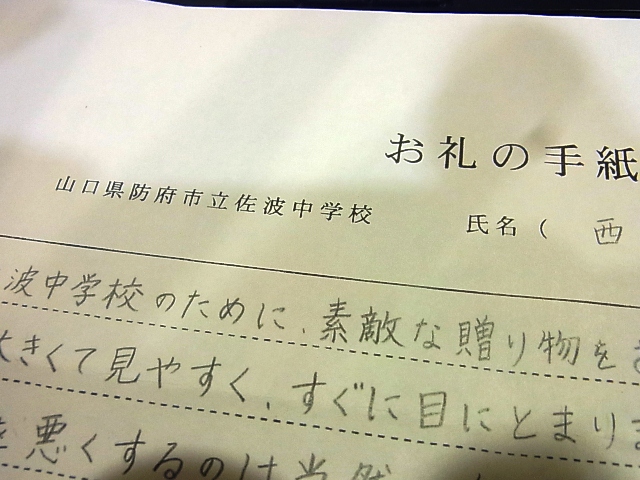 お礼の手紙
山口県防府市立佐波中学校 氏名( 西
波中学校のために、素敵な贈り物を
大きくて見やすく、すぐに目にとまりま
悪くするのは当然